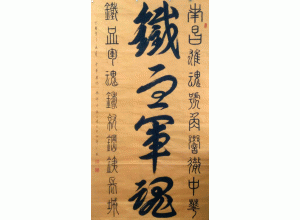 南昌雄魂號角響徹中華
鐵血軍魂
鐵血軍魂鑄就鋼鐵長城